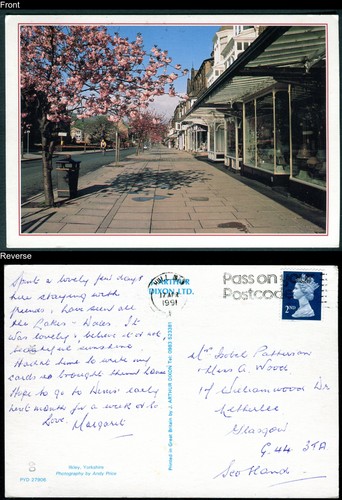 Front
Reverse
Spent a lovely few days
here staying with
friends, have seen all
the Lakes - Dales. It
was lovely, & believe it or not,
beautiful sunshine.
Hadn't time to write my
cards so brought them home
Hope to go to Devon early
next month for a week or so
Love, Margaret
Ilkley, Yorkshire
Photography by Andy Price
PYO 27808
ARTHUR
DIXON LTD.
Printed in Great Britain by J. ARTHUR DIXON Tel: 0983 523381
1991
Pass on
Postcode
2ND
Mrs Isobel Patterson
Miss A. Wood
17 Williamwood Dr
Netherlee
Glasgow
G.44. 3TA
Scotland